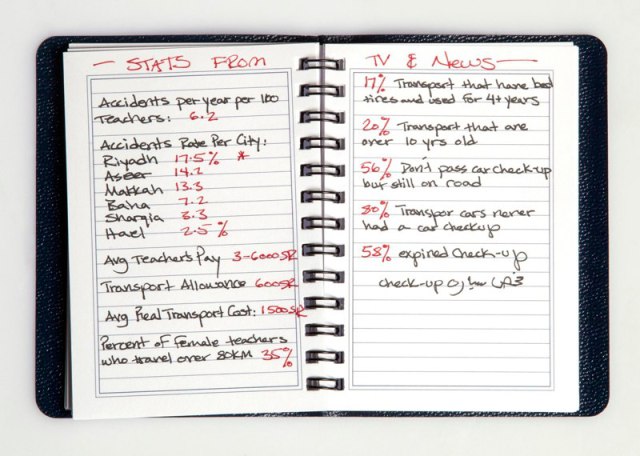 — STATS FROM
Accidents per year per 100
Teachers: 6.2
Accidents Rate Per City:
Riyadh 17.5% *
Aseer 14.2
Makkah 13.3
Baha 7.2
Sharqia 3.3
Hael 2.5%
Avg Teachers Pay 3-6000SR
Transport Allowance 600SR
Avg Real Transport Cost: 1500SR
Percent of Female teachers
who travel over 80KM 35%
TV & NEWS —
17% Transport that have bad
tires and used for 4+ years
20% Transport that are
over 10 yrs old
56% Don't pass car check-up
but still on road
80% Transpor cars never
had a car checkup
58% expired check-up
check-up